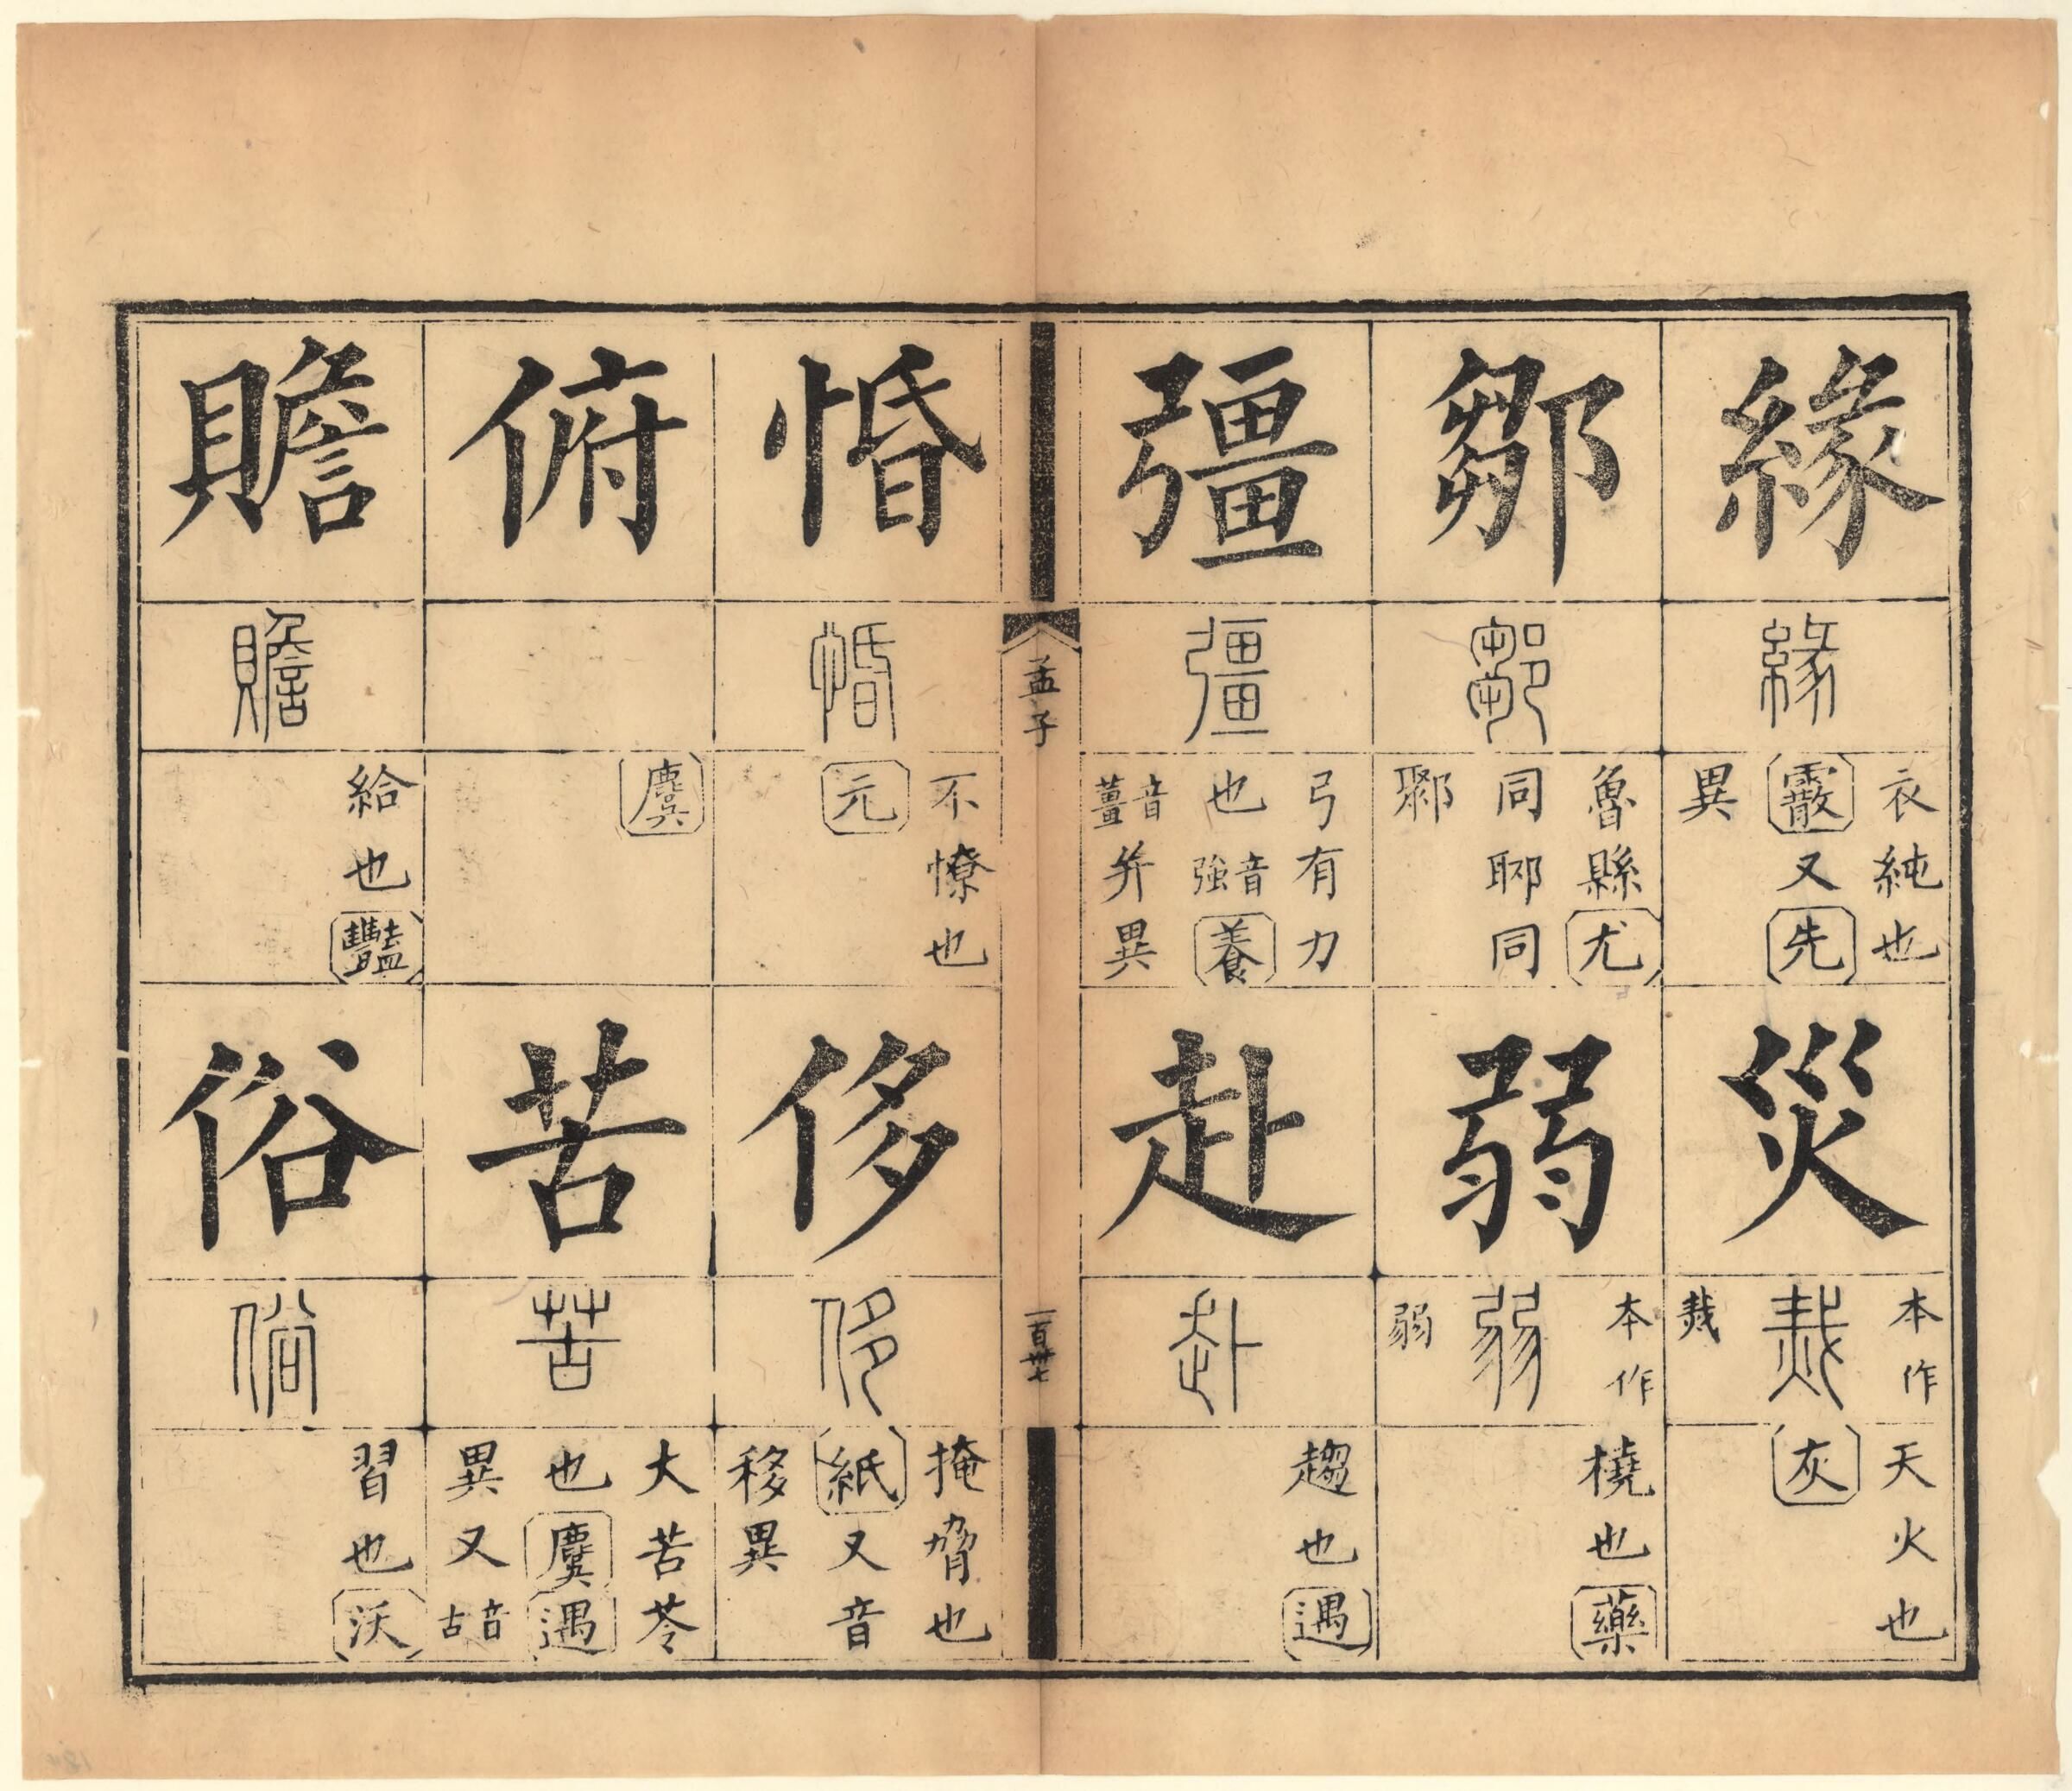 緣
緣
衣純也
霰又先
異
災
本作
烖
烖
天火也
灰
鄒
鄒
魯縣尤
同郰同
鄹
弱
本作
弱
弱
橈也藥
彊
彊
弓有力
也音強養
音薑𢆙異
赴
赴
趨也遇
孟子
一百卌七
惛
惛
不憭也
元
侈
侈
掩脅也
紙又音
移異
俯
麌
苦
苦
大苦苓
也麌遇
異又音古
贍
贍
給也豔
俗
俗
習也沃